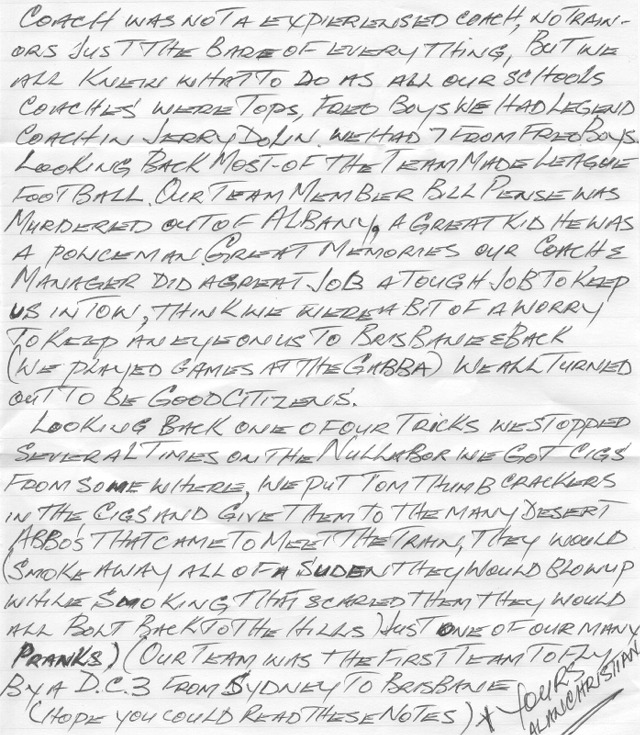 COACH WAS NOT A EXPIERENSED COACH, NO TRAIN-
ORS JUST THE BARE OF EVERYTHING, BUT WE
ALL KNEW WHAT TO DO AS ALL OUR SCHOOLS
COACHES WERE TOPS, FREO BOYS WE HAD LEGEND
COACH IN JERRY DOLIN. WE HAD 7 FROM FREO BOYS.
LOOKING BACK MOST OF THE TEAM MADE LEAGUE
FOOTBALL. OUR TEAM MEMBER BILL PENSE WAS
MURDERED OUT OF ALBANY, A GREAT KID HE WAS
A POLICEMAN. GREAT MEMORIES OUR COACH &
MANAGER DID A GREAT JOB A TOUGH JOB TO KEEP
US IN TOW, THINK WE WERE A BIT OF A WORRY
TO KEEP AN EYE ON US TO BRISBANE & BACK
(WE PLAYED GAMES AT THE GABBA) WE ALL TURNED
OUT TO BE GOOD CITIZENS.
LOOKING BACK ONE OF OUR TRICKS WE STOPPED
SEVERAL TIMES ON THE NULLABOR WE GOT CIGS
FROM SOMEWHERE, WE PUT TOM THUMB CRACKERS
IN THE CIGS AND GIVE THEM TO THE MANY DESERT
ABBO'S THAT CAME TO MEET THE TRAIN, THEY WOULD
(SMOKE AWAY ALL OF A SUDEN THEY WOULD BLOW UP
WHILE SMOKING THAT SCARED THEM THEY WOULD
ALL BOLT BACK TO THE HILLS) JUST ONE OF OUR MANY
PRANKS) (OUR TEAM WAS THE FIRST TEAM TO FLY
BY A D.C.3 FROM SYDNEY TO BRISBANE
(HOPE YOU COULD READ THESE NOTES) * YOURS
ALAN CHRISTIAN